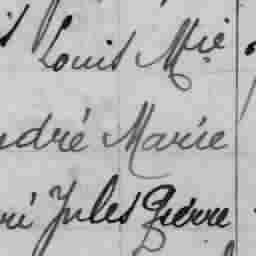 Louis Mie
ndré Marie
ré Jules Pierre